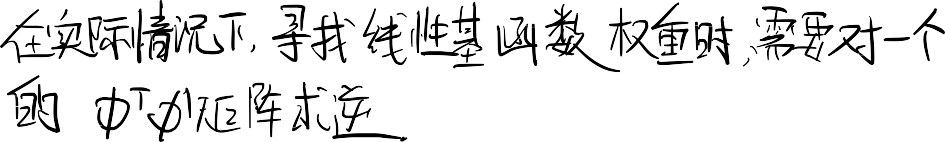 在实际情况下,寻找线性基函数权重时,需要对一个
的 φᵀφ矩阵求逆